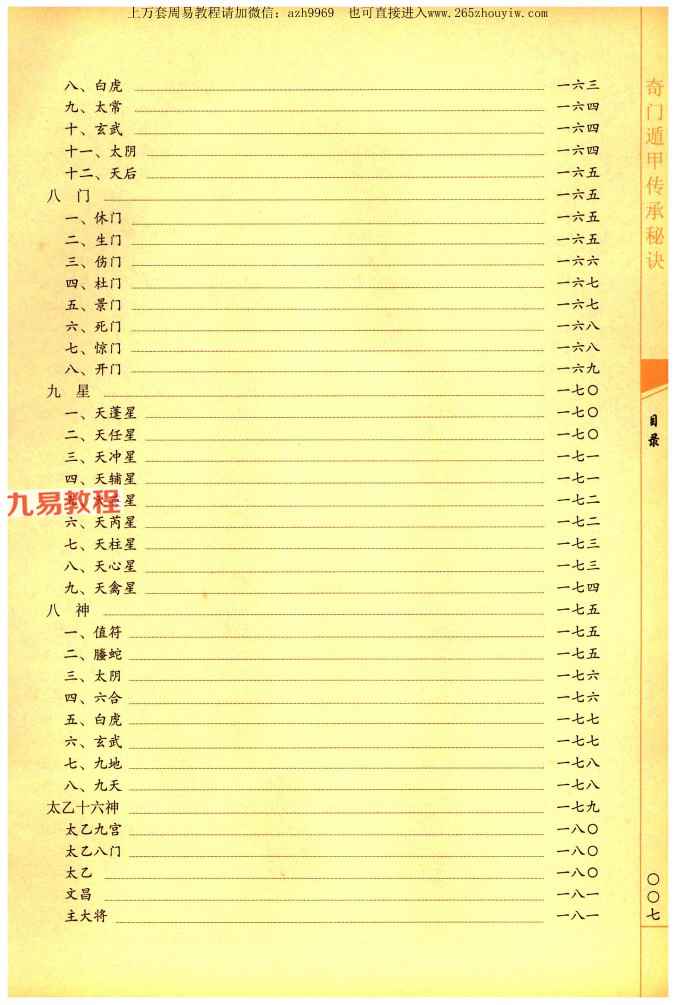 上万套周易教程请加微信：azh9969 也可直接进入www.265zhouyiw.com
八、白虎 一六三
九、太常 一六四
十、玄武 一六四
十一、太阴 一六四
十二、天后 一六五
八 门 一六五
一、休门 一六五
二、生门 一六五
三、伤门 一六六
四、杜门 一六七
五、景门 一六七
六、死门 一六八
七、惊门 一六八
八、开门 一六九
九 星 一七〇
一、天蓬星 一七〇
二、天任星 一七〇
三、天冲星 一七一
四、天辅星 一七一
星 一七二
六、天芮星 一七二
七、天柱星 一七三
八、天心星 一七三
九、天禽星 一七四
八 神 一七五
一、值符 一七五
二、螣蛇 一七五
三、太阴 一七六
四、六合 一七六
五、白虎 一七七
六、玄武 一七七
七、九地 一七八
八、九天 一七八
太乙十六神 一七九
太乙九宫 一八〇
太乙八门 一八〇
太乙 一八〇
文昌 一八一
主大将 一八一
九易教程
奇门遁甲传承秘诀
目录
〇〇七